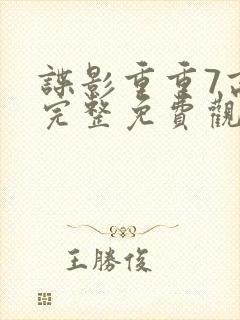 諜影重重7高
完整免費觀
王勝俊